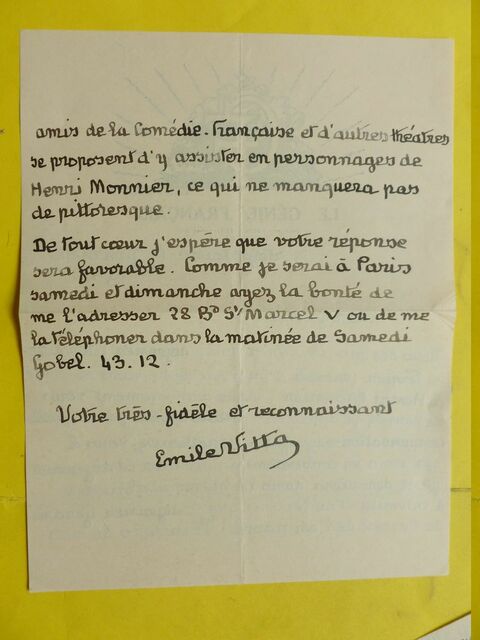 amis de la Comédie-Française et d'autres théatres
se proposent d'y assister en personnages de
Henri Monnier, ce qui ne manquera pas
de pittoresque.
De tout cœur j'espère que votre réponse
sera favorable. Comme je serai à Paris
samedi et dimanche ayez la bonté de
me l'adresser 28 Bd St Marcel V ou de me
la téléphoner dans la matinée de Samedi
Gobel. 43.12.
Votre très-fidèle et reconnaissant
Emile Vitta
LE GÉNIE FRANÇAIS